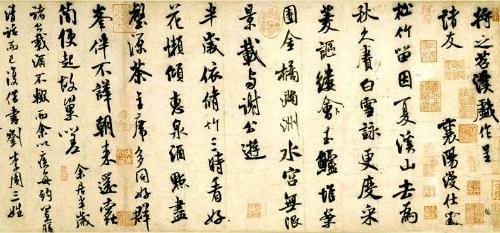 將之苕溪戲作呈
諸友
襄陽漫仕黻
松竹留因夏溪山去為
秋久賡白雪詠更度采
菱謳縷會玉鱸堆案
團金橘滿洲水宮無限
景載與謝公遊
半歲依脩竹三時看好
花懶傾惠泉酒點盡
壑源茶主席多同好群
峯伴不譁朝來還蠹
簡便起故巢嗟
余居半歲
諸公載酒不輟而余以疾每約置膳
清話而已復借書劉李周三姓